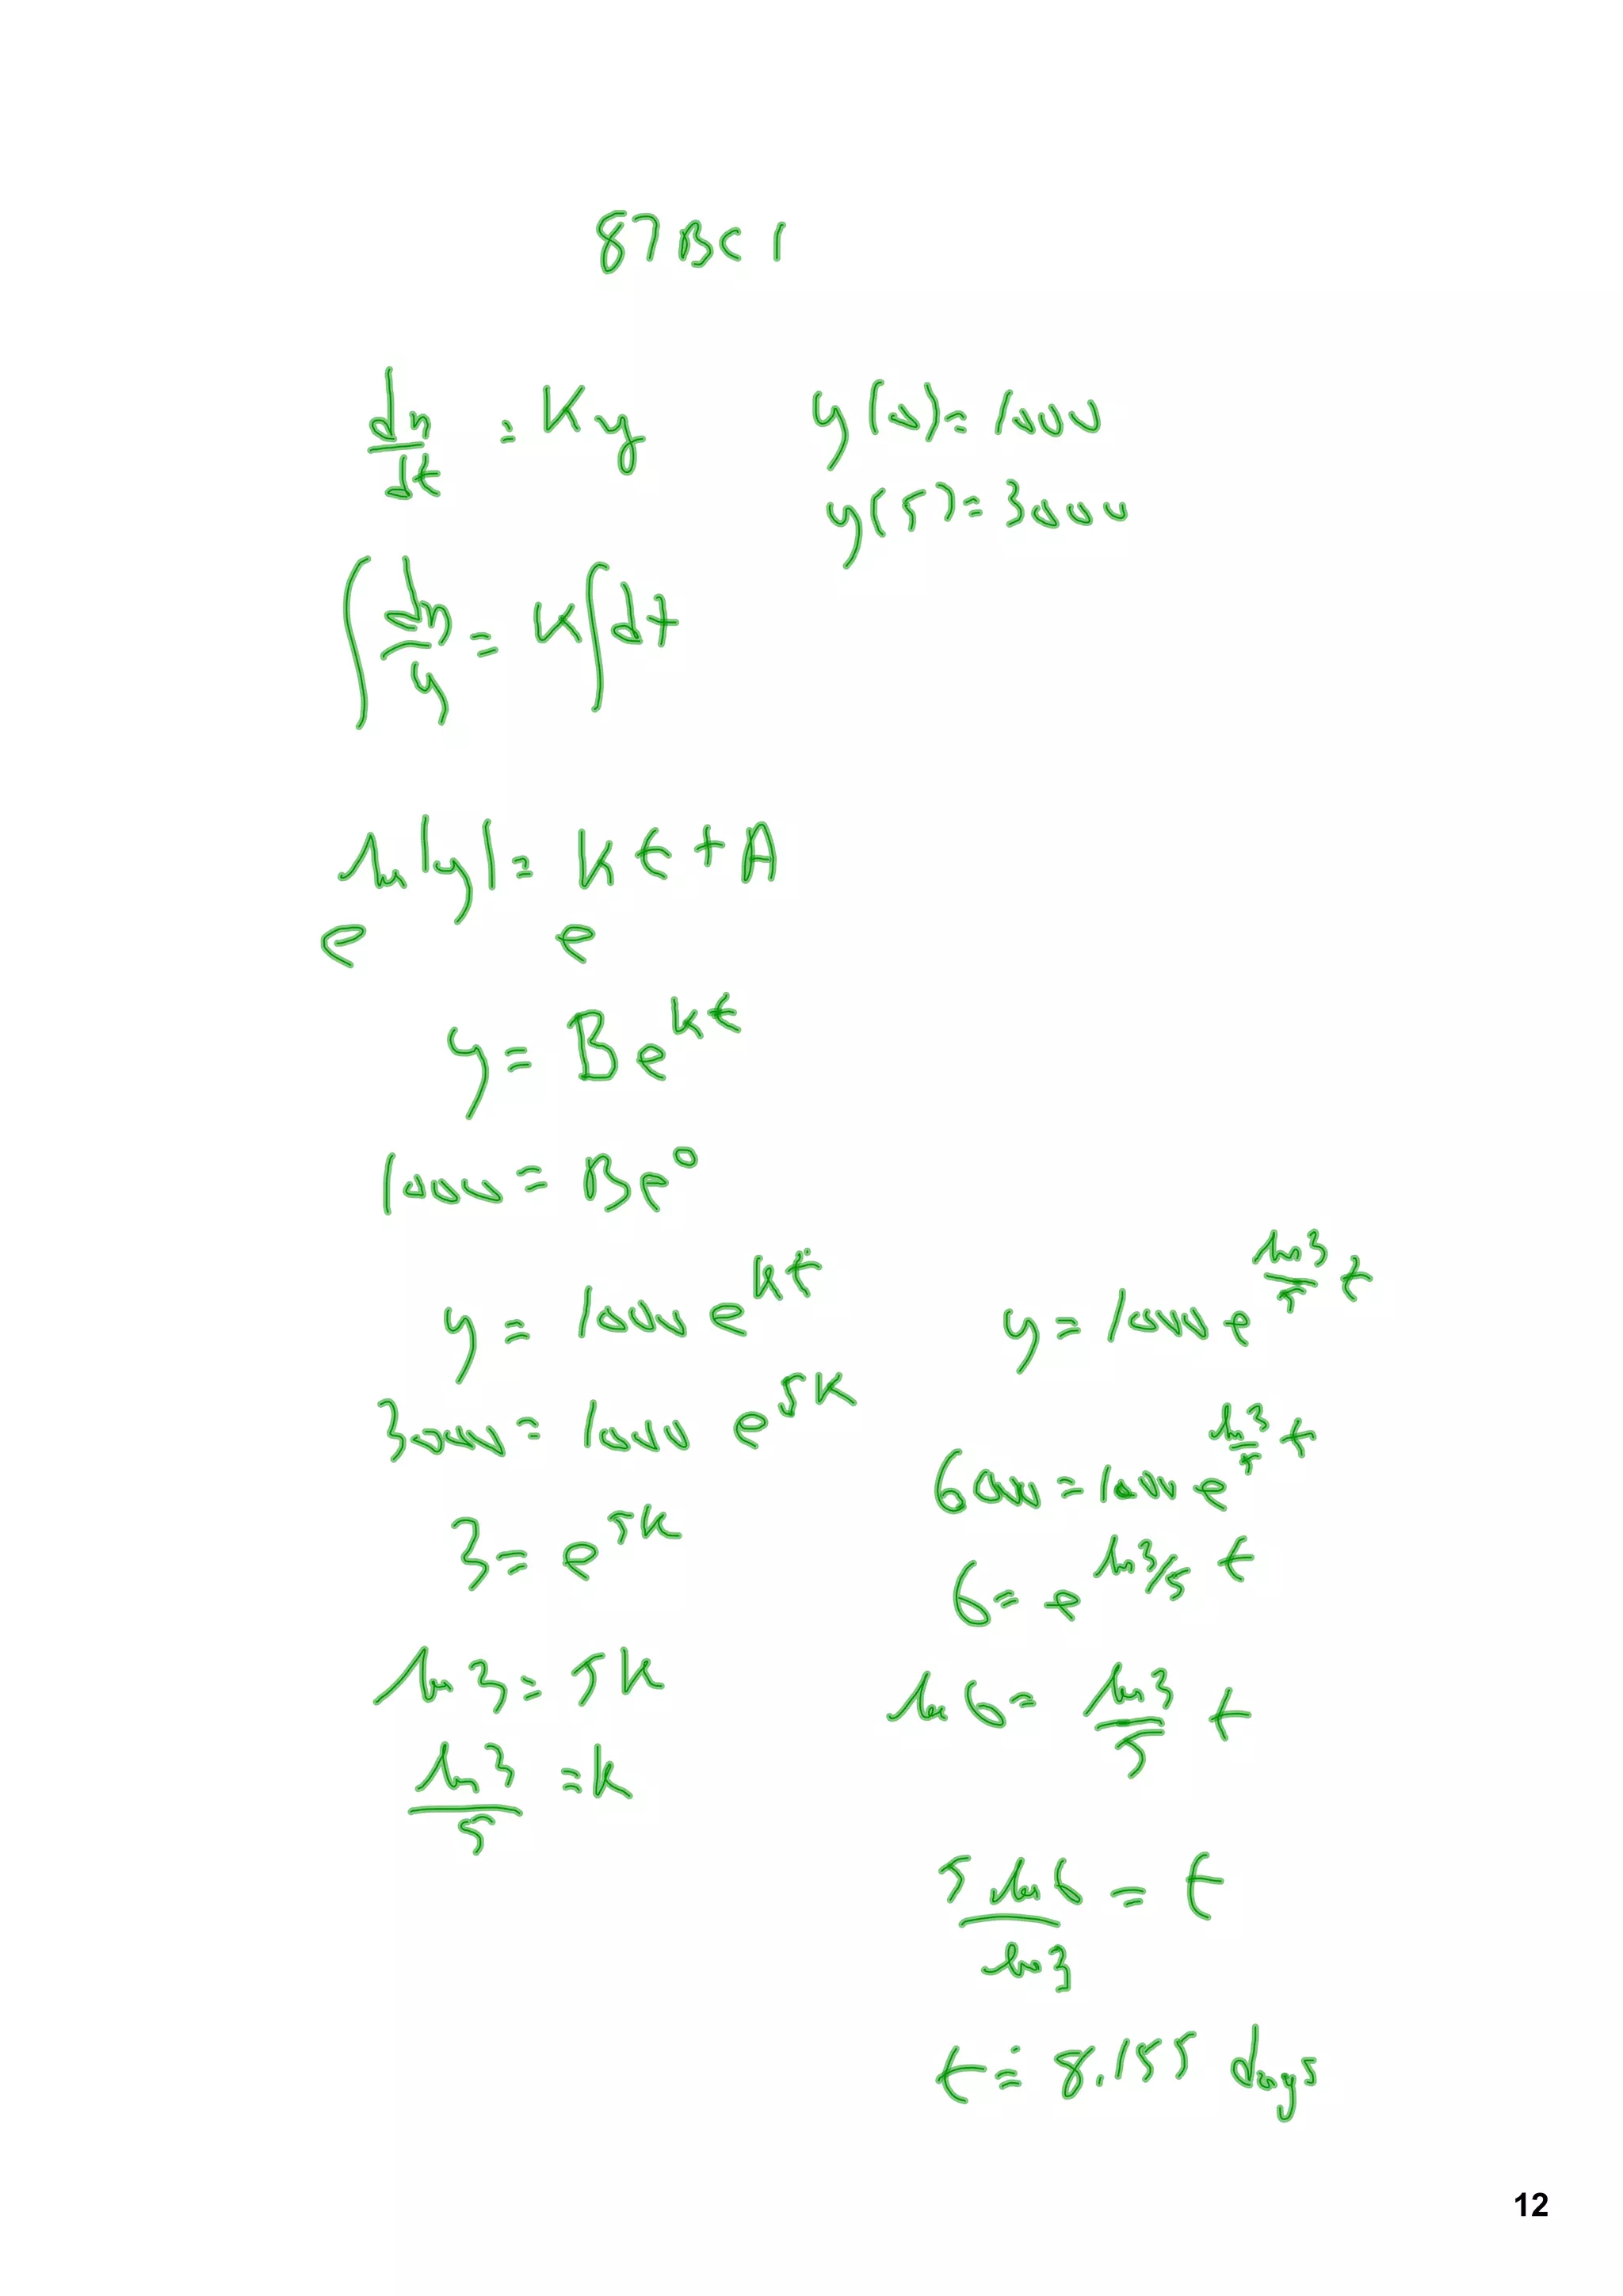 87 BC 1
dy/dt = Ky
y(0) = 1000
y(5) = 3000
∫ dy/y = K∫dt
ln|y| = Kt + A
e e
y = Be^kt
1000 = Be^0
y = 1000 e^kt
3000 = 1000 e^5K
3 = e^5K
ln 3 = 5K
ln 3/5 = k
y = 1000 e^(ln3/5 t)
6000 = 1000 e^(ln3/5 t)
6 = e^(ln3/5 t)
ln 6 = ln3/5 t
5 ln 6/ln 3 = t
t ≐ 8.155 days
12